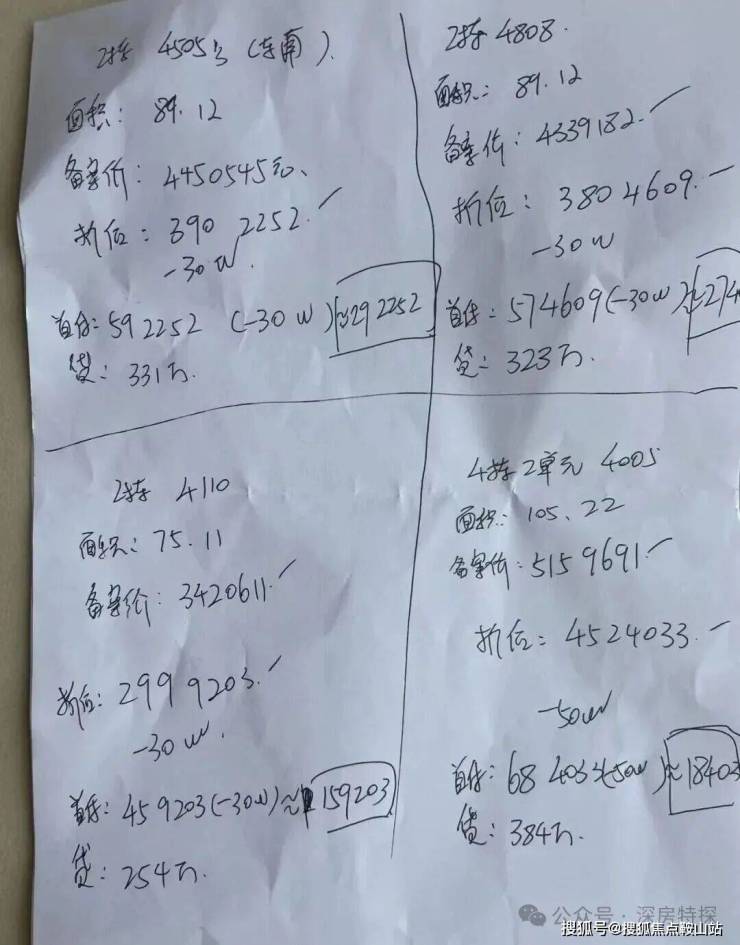 2栋 4505号 (东南).
面积: 89.12
备案价: 4450545元、
折后: 390 2252.
-30W.
首付: 592252 (-30W) ≈292252
贷: 331万.
2栋 4808.
面积: 89.12
备案价: 4339182.
折后: 3804609.
-30W
首付: 574609(-30W) ≈274
贷: 323万.
2栋 4110
面积: 75.11
备案价: 3420611.
折后: 299 9203.
-30W.
首付: 459203(-30W)≈ 159203
贷: 254万.
4栋2单元 4005
面积: 105.22
备案价: 515 9691.
折后: 4524033.
-50W
首付: 684033(-50W)≈18403
贷: 384万.
公众号 · 深房特探
搜狐号@搜狐焦点鞍山站